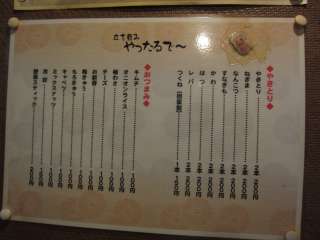 立ち呑み
やったるで〜
◆やきとり◆
やきとり 2本 200円
ねぎま 2本 200円
なんこつ 2本 200円
すなぎも 2本 200円
かわ 2本 200円
はつ 2本 200円
レバ 2本 200円
つくね 1本 150円
◆おつまみ◆
キムチ 100円
オニオンライス 100円
梅きゅう 100円
チーズ 100円
お新香 100円
もろきゅう 100円
キャベツ 100円
ミックスナッツ 100円
冷奴 200円
野菜スティック 200円